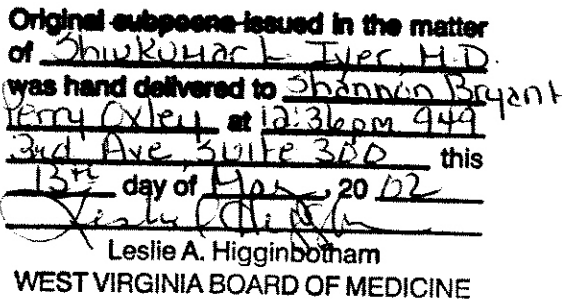 Original subpoena issued in the matter
of Shivkumar L Iyer, M.D.
was hand delivered to Shannon Bryant
Perry Oxley at 12:36pm 949
3rd Ave, Suite 300 this
13th day of May, 20 02
Leslie A. Higginbotham
WEST VIRGINIA BOARD OF MEDICINE